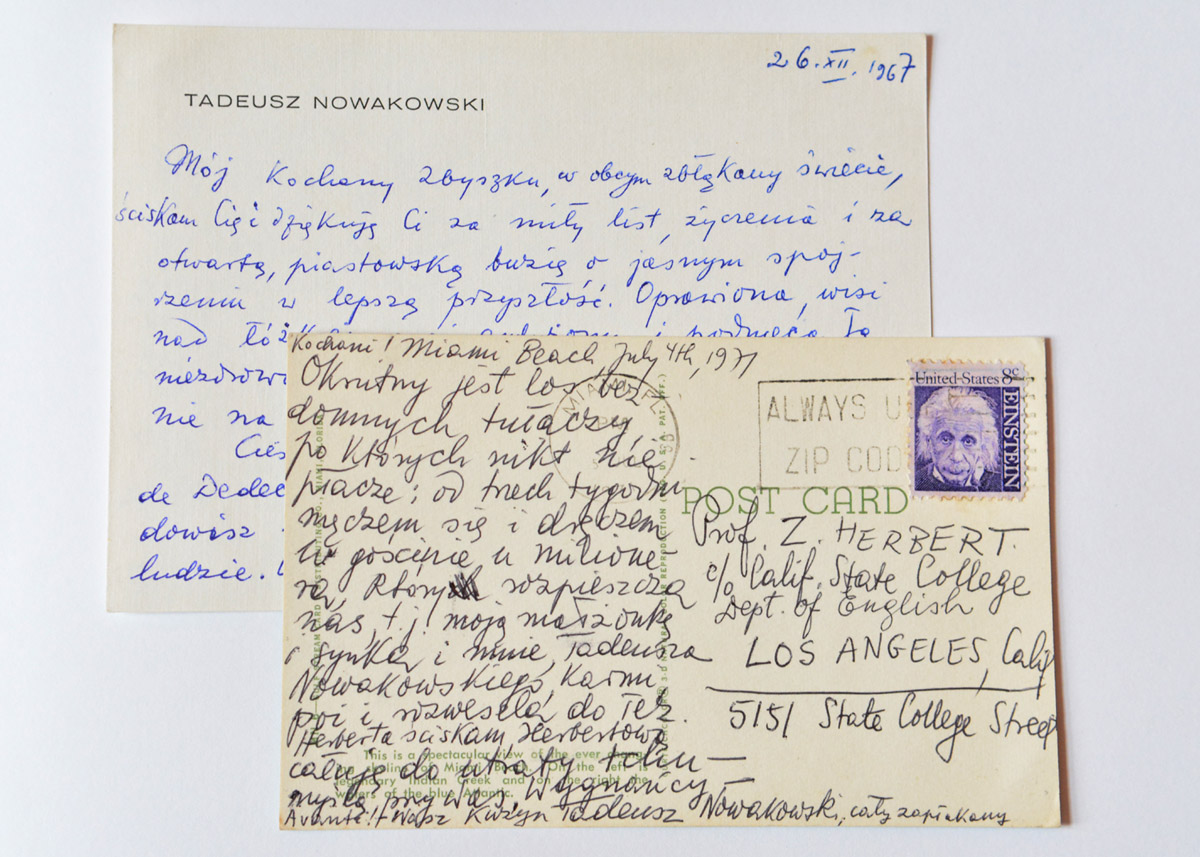 26.XII.1967
TADEUSZ NOWAKOWSKI
Mój Kochany Zbyszku, w obcym zbłąkany świecie,
ściskam Cię i dziękuję Ci za miły list, życzenia i za
otwartą, piastowską buzię o jasnym spój-
rzeniu w lepszą przyszłość. Oprawiona, wisi
nad
niezdrow
nie na
Cies
de Dedec
dowisz
ludzie.
Kochani! Miami Beach July 4th, 1971
Okrutny jest los bez-
domnych tułaczy
po których nikt nie
płacze; od trzech tygodni
męczem się i dręczem
w gościnie u milione-
ra, który rozpieszcza
nas, t.j. moją małżonkę
i synka, i mnie, Tadeusza
Nowakowskiego, karmi
poi i rozwesela do łez.
Herberta ściskam, Herbertową
całuję do utraty tchu —
myślą przy was, Wygnańcy —
Avanti!! Wasz Kuzyn Tadeusz Nowakowski, cały zapłakany
MIAMI, FL
ALWAYS U
ZIP COD
United States 8c
EINSTEIN
POST CARD
Prof. Z. HERBERT.
c/o Calif. State College
Dept. of English
LOS ANGELES, Calif
5151 State College Street
This is a spectacular view of the ever chang-
ing skyline of Miami Beach. On the left
legendary Indian Creek and on the right the
waters of the blue Atlantic.